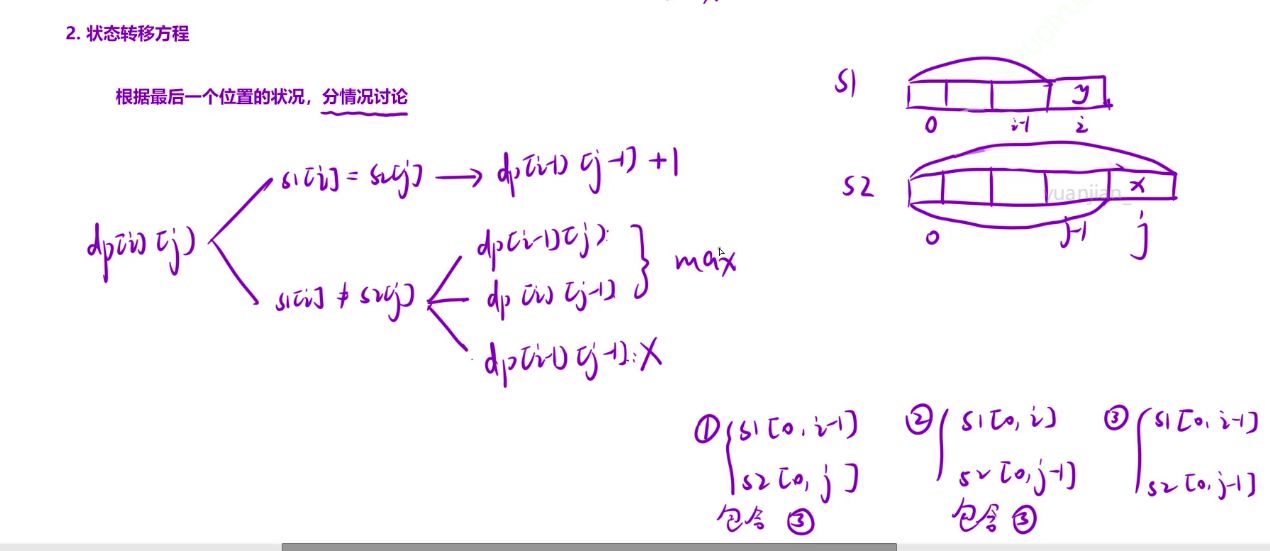 2. 状态转移方程
根据最后一个位置的状况，分情况讨论
dp[i][j]
s1[i] = s2[j] → dp[i-1][j-1] + 1
s1[i] ≠ s2[j]
dp[i-1][j]
dp[i][j-1]
max
dp[i-1][j-1] X
s1
y
0 i-1 i
s2
x
yuanjian_
0 j-1 j
① s1[0, i-1]
s2[0, j]
包含 ③
② s1[0, i]
s2[0, j-1]
包含 ③
③ s1[0, i-1]
s2[0, j-1]